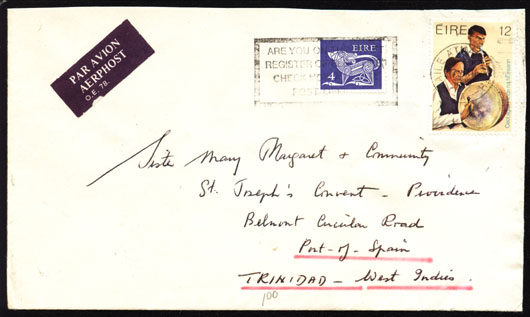 PAR AVION
AERPHOST
O.E. 78.
ARE YOU O
REGISTER O
CHECK NO
POST OF
ÉIRE
4
ÉIRE 12
Sister Mary Margaret & Community
St. Joseph's Convent - Providence
Belmont Circular Road
Port-of-Spain
TRINIDAD - West Indies.
100